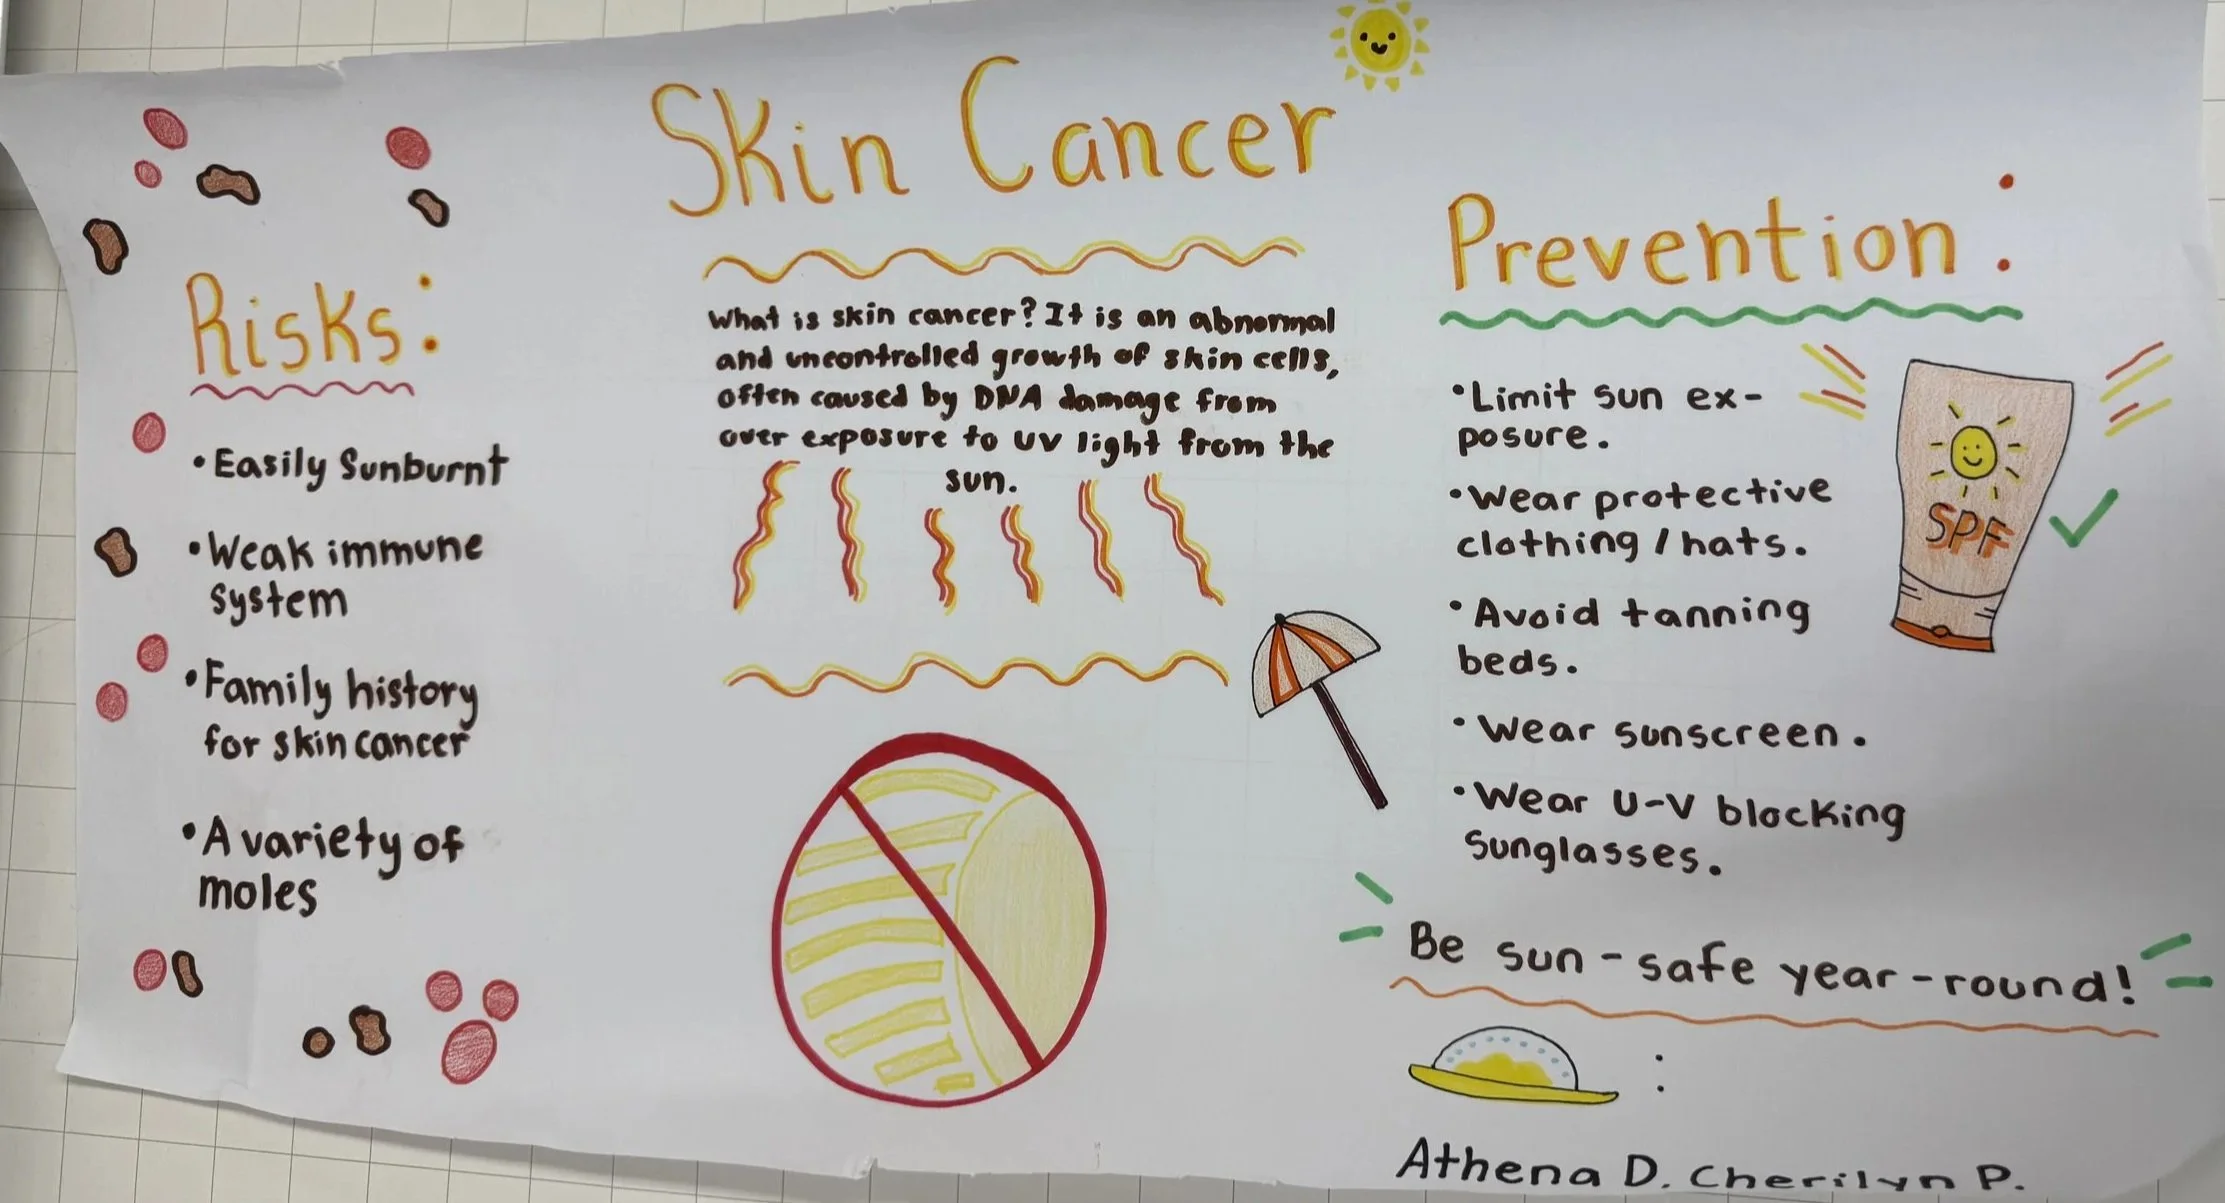 Skin Cancer
What is skin cancer? It is an abnormal
and uncontrolled growth of skin cells,
often caused by DNA damage from
over exposure to UV light from the
sun.
Risks:
•Easily Sunburnt
•Weak immune
system
•Family history
for skin cancer
•A variety of
moles
Prevention:
•Limit sun ex-
posure.
•Wear protective
clothing/hats.
•Avoid tanning
beds.
•Wear sunscreen.
•Wear U-V blocking
sunglasses.
SPF
Be sun-safe year-round!
:
Athena D. Cherilyn P.